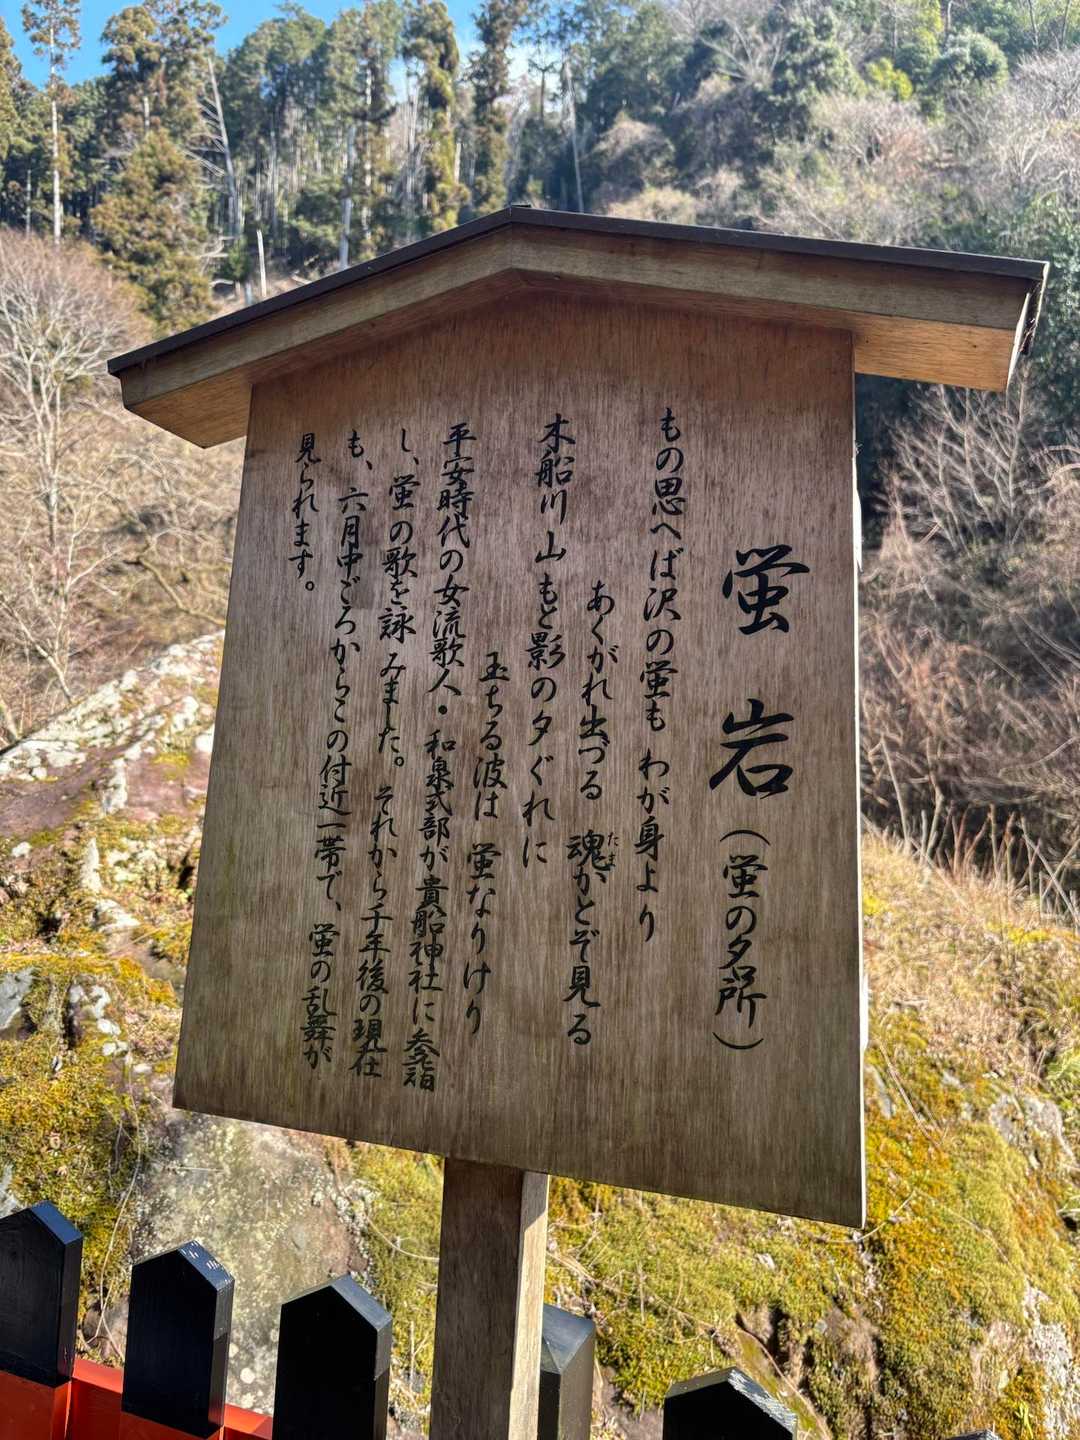 蛍岩(蛍の名所)
もの思へば沢の蛍も わが身より
あくがれ出づる 魂かとぞ見る
たま
木船川山もと影の夕ぐれに
玉ちる波は 蛍なりけり
平安時代の女流歌人・和泉式部が貴船神社に参詣
し、蛍の歌を詠みました。それから千年後の現在
も、六月中ごろからこの付近一帯で、蛍の乱舞が
見られます。